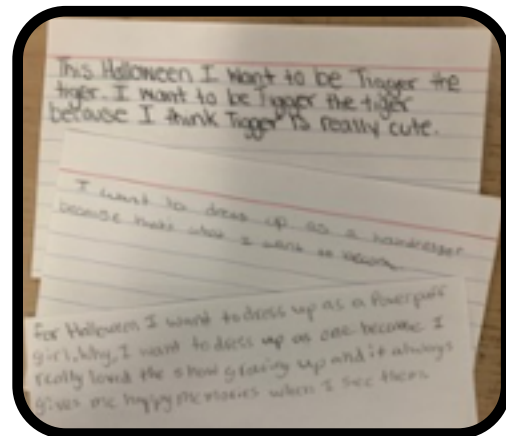 This Halloween I want to be Tigger the
tiger. I want to be Tigger the tiger
because I think Tigger is really cute.
I want to dress up as a hairdresser
because that's what I want to become
For Halloween I want to dress up as a Powerpuff
girl. Why, I want to dress up as one because I
really loved the show growing up and it always
gives me happy memories when I see them.